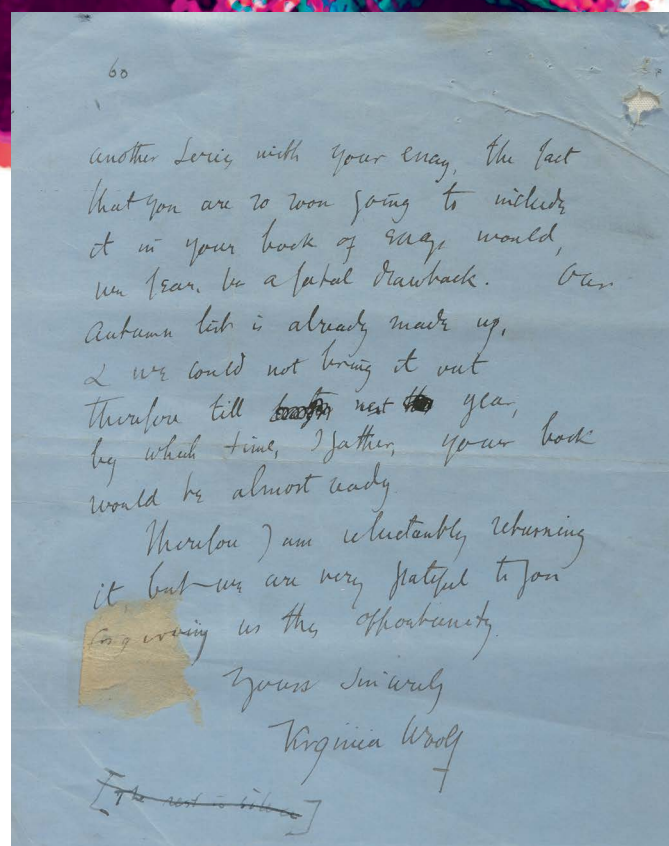 60
another Series with your essay, the fact
that you are so soon going to include
it in your book of Essays would,
we fear, be a fatal drawback. Our
Autumn list is already made up,
& we could not bring it out
therefore till next year,
by which time, I gather, your book
would be almost ready
Therefore I am reluctantly returning
it, but we are very grateful to you
for giving us the opportunity.
Yours sincerely
Virginia Woolf
[The rest is